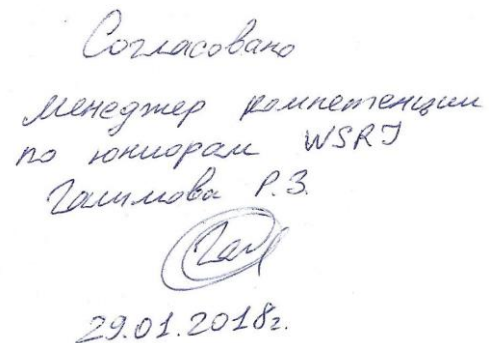 Согласовано
Менеджер компетенции
по юниорам WSRJ
Галимова Р.З.
Гал
29.01.2018г.